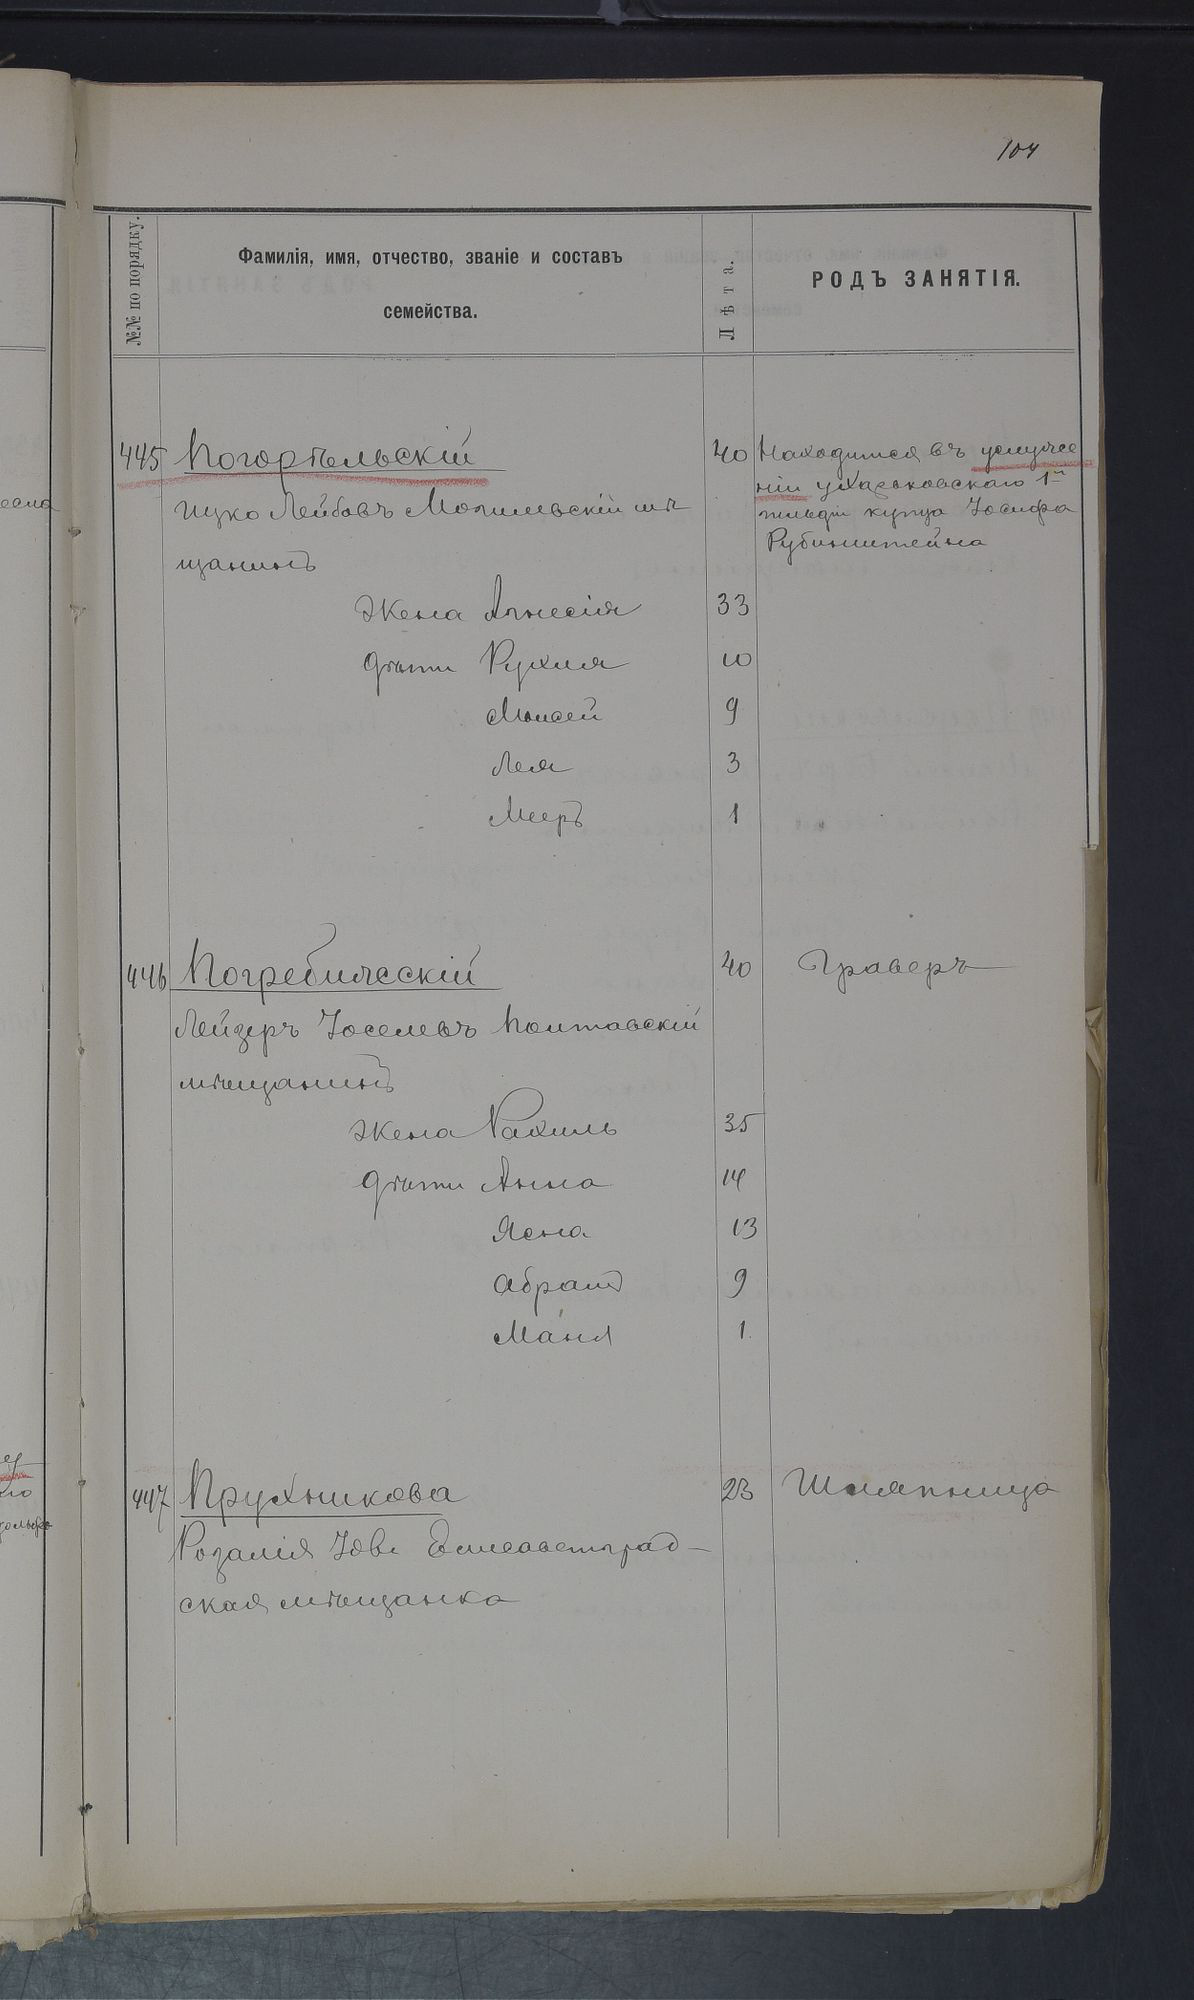 104
№№ по порядку.
Фамилія, имя, отчество, званіе и составъ
семейства.
Лѣта.
РОДЪ ЗАНЯТІЯ.
445 Погорѣльскій 40 Находится въ услуже
ніи у Харьковскаго 1й
гильдіи купца Іосифа
Рубинштейна
Ицко Лейбовъ Могилевскій мѣ
щанинъ
Жена Агнесія 33
дѣти Рухля 10
Моисей 9
Лея 3
Мееръ 1
446 Погребичскій 40 Граверъ
Лейзеръ Іоселевъ Полтавскій
мѣщанинъ
Жена Рахиль 35
дѣти Анна 14
Ясна 13
Абрамъ 9
Маня 1
447 Пружникова 23 Шляпница
Розалія Елисаветград-
ская мѣщанка